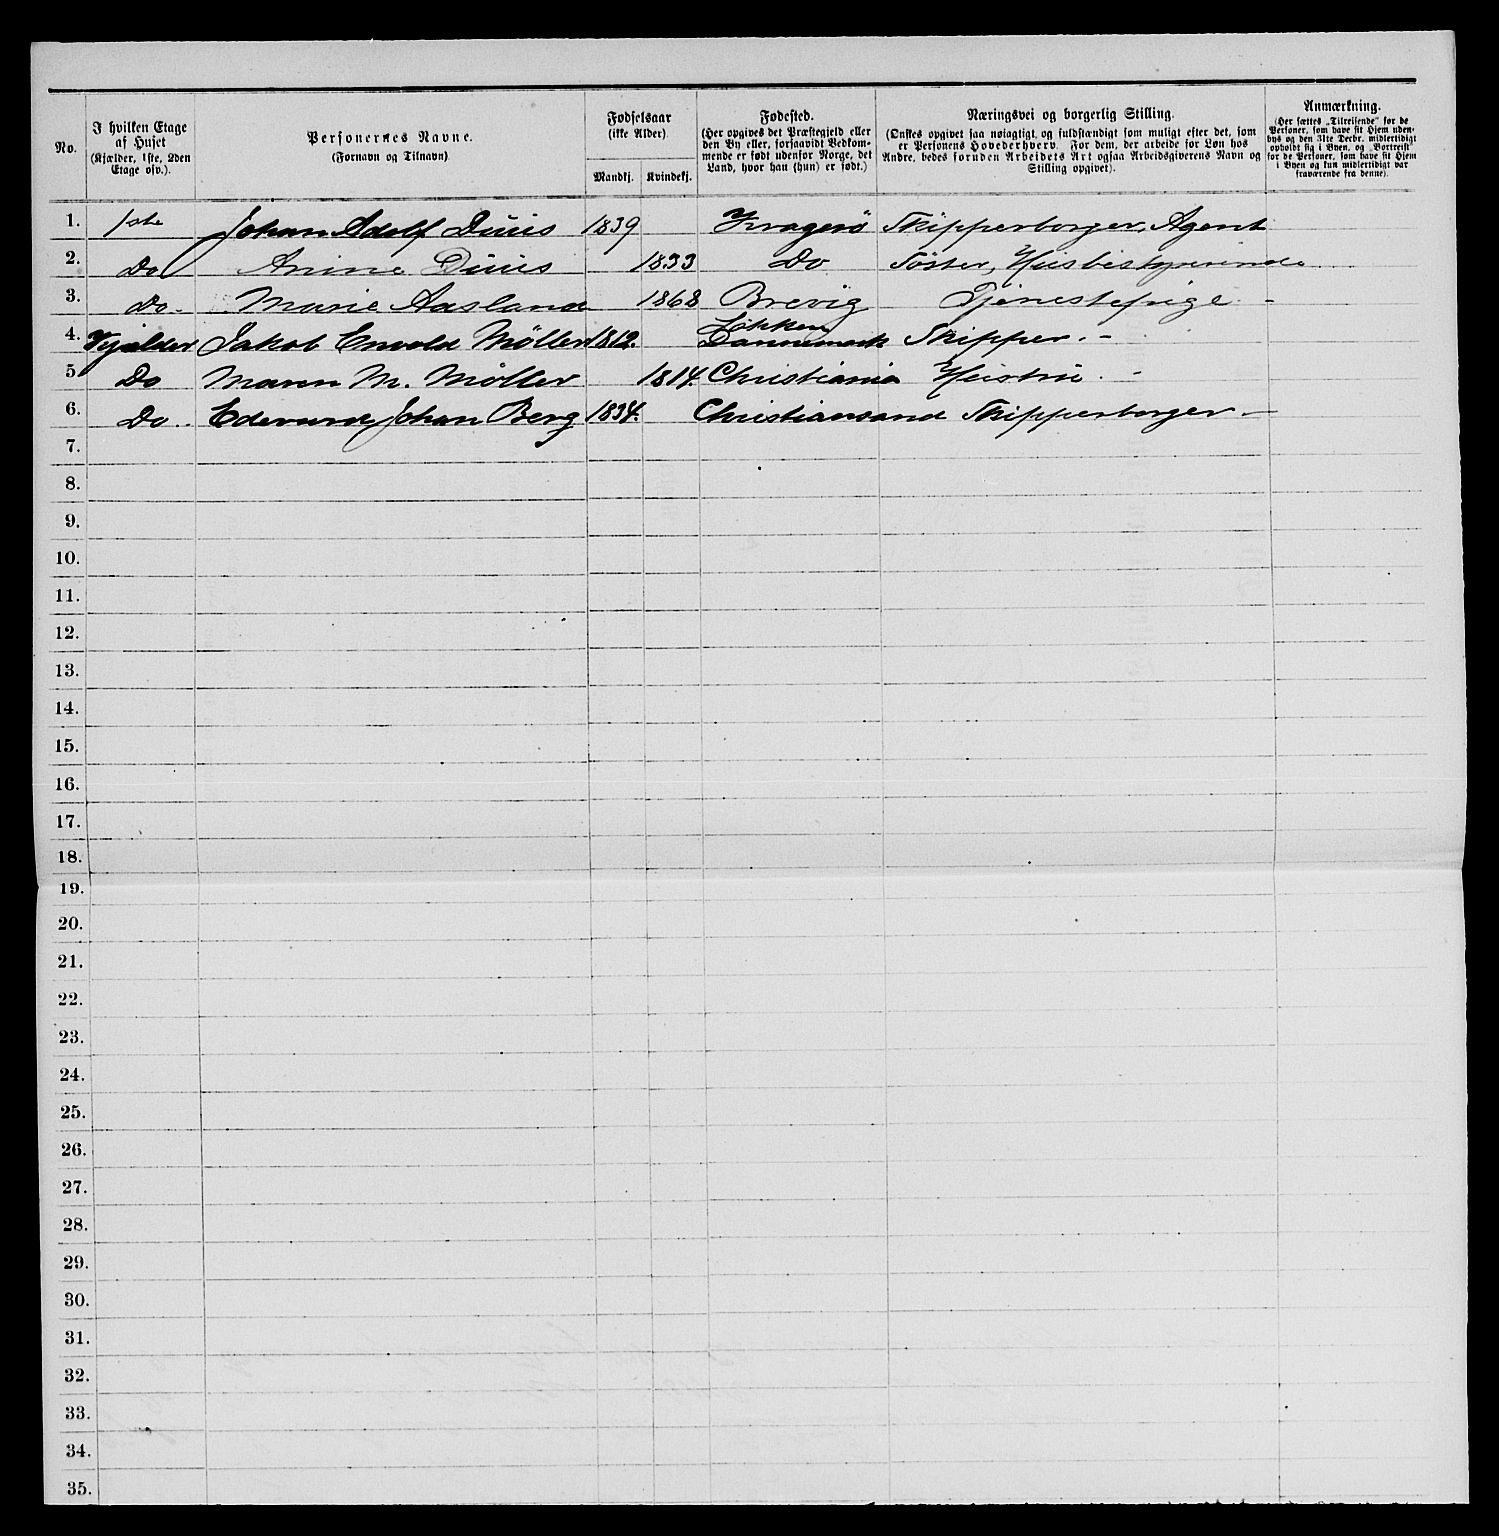 No.
I hvilken Etage
af Huset
(Kjælder, 1ste, 2den
Etage osv.).
Personernes Navne.
(Fornavn og Tilnavn)
Fødselsaar
(ikke Alder).
Mandkj. Kvindekj.
Fødested.
(Her opgives det Præstegjeld eller
den By eller, forsaavidt Vedkom-
mende er født udenfor Norge, det
Land, hvor han (hun) er født.)
Næringsvei og borgerlig Stilling.
(Ønskes opgivet saa nøiagtigt, og fuldstændigt som muligt efter det, som
er Personens Hovederhverv. For dem, der arbeide for Løn hos
Andre, bedes foruden Arbeidets Art ogsaa Arbeidsgiverens Navn og
Stilling opgivet).
Anmærkning.
(Her sættes „Tilreisende“ for de
Personer, som have sit Hjem uden-
bys og den 31te Decbr. midlertidigt
opholdt sig i Byen, og „Bortreist“
for de Personer, som have sit Hjem
i Byen og kun midlertidigt var
fraværende fra denne).
1. 1ste Johan Adolf Duus 1839 Kragerö Skipperborger, Agent
2. Do Anine Duus 1833 Do Söster, Husbestyrerinde
3. Do. Marie Aasland 1868 Brevig Tjenestepige -
4. Kjælder Jakob Envold Möller 1812. Lökken Dannemark Skipper. -
5. Do Maren M. Möller 1814. Christiania Hustru. -
6. Do. Edevard Johan Berg 1834. Christiansand Skipperborger -
7.
8.
9.
10.
11.
12.
13.
14.
15.
16.
17.
18.
19.
20.
21.
22.
23.
24.
25.
26.
27.
28.
29.
30.
31.
32.
33.
34.
35.